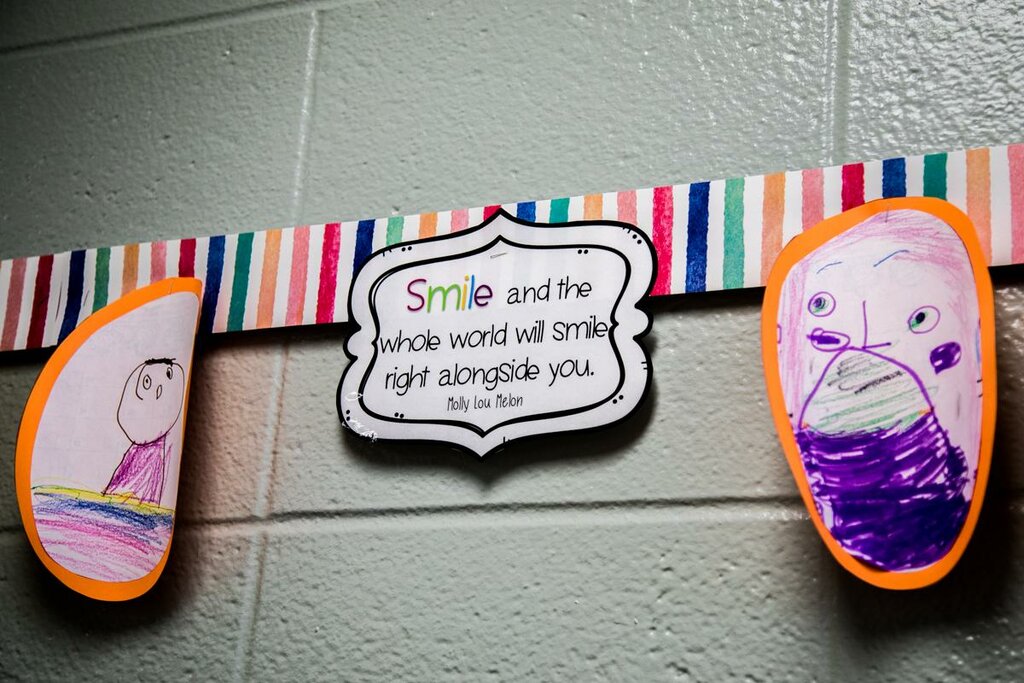 Smile and the
whole world will smile
right alongside you.
Molly Lou Melon